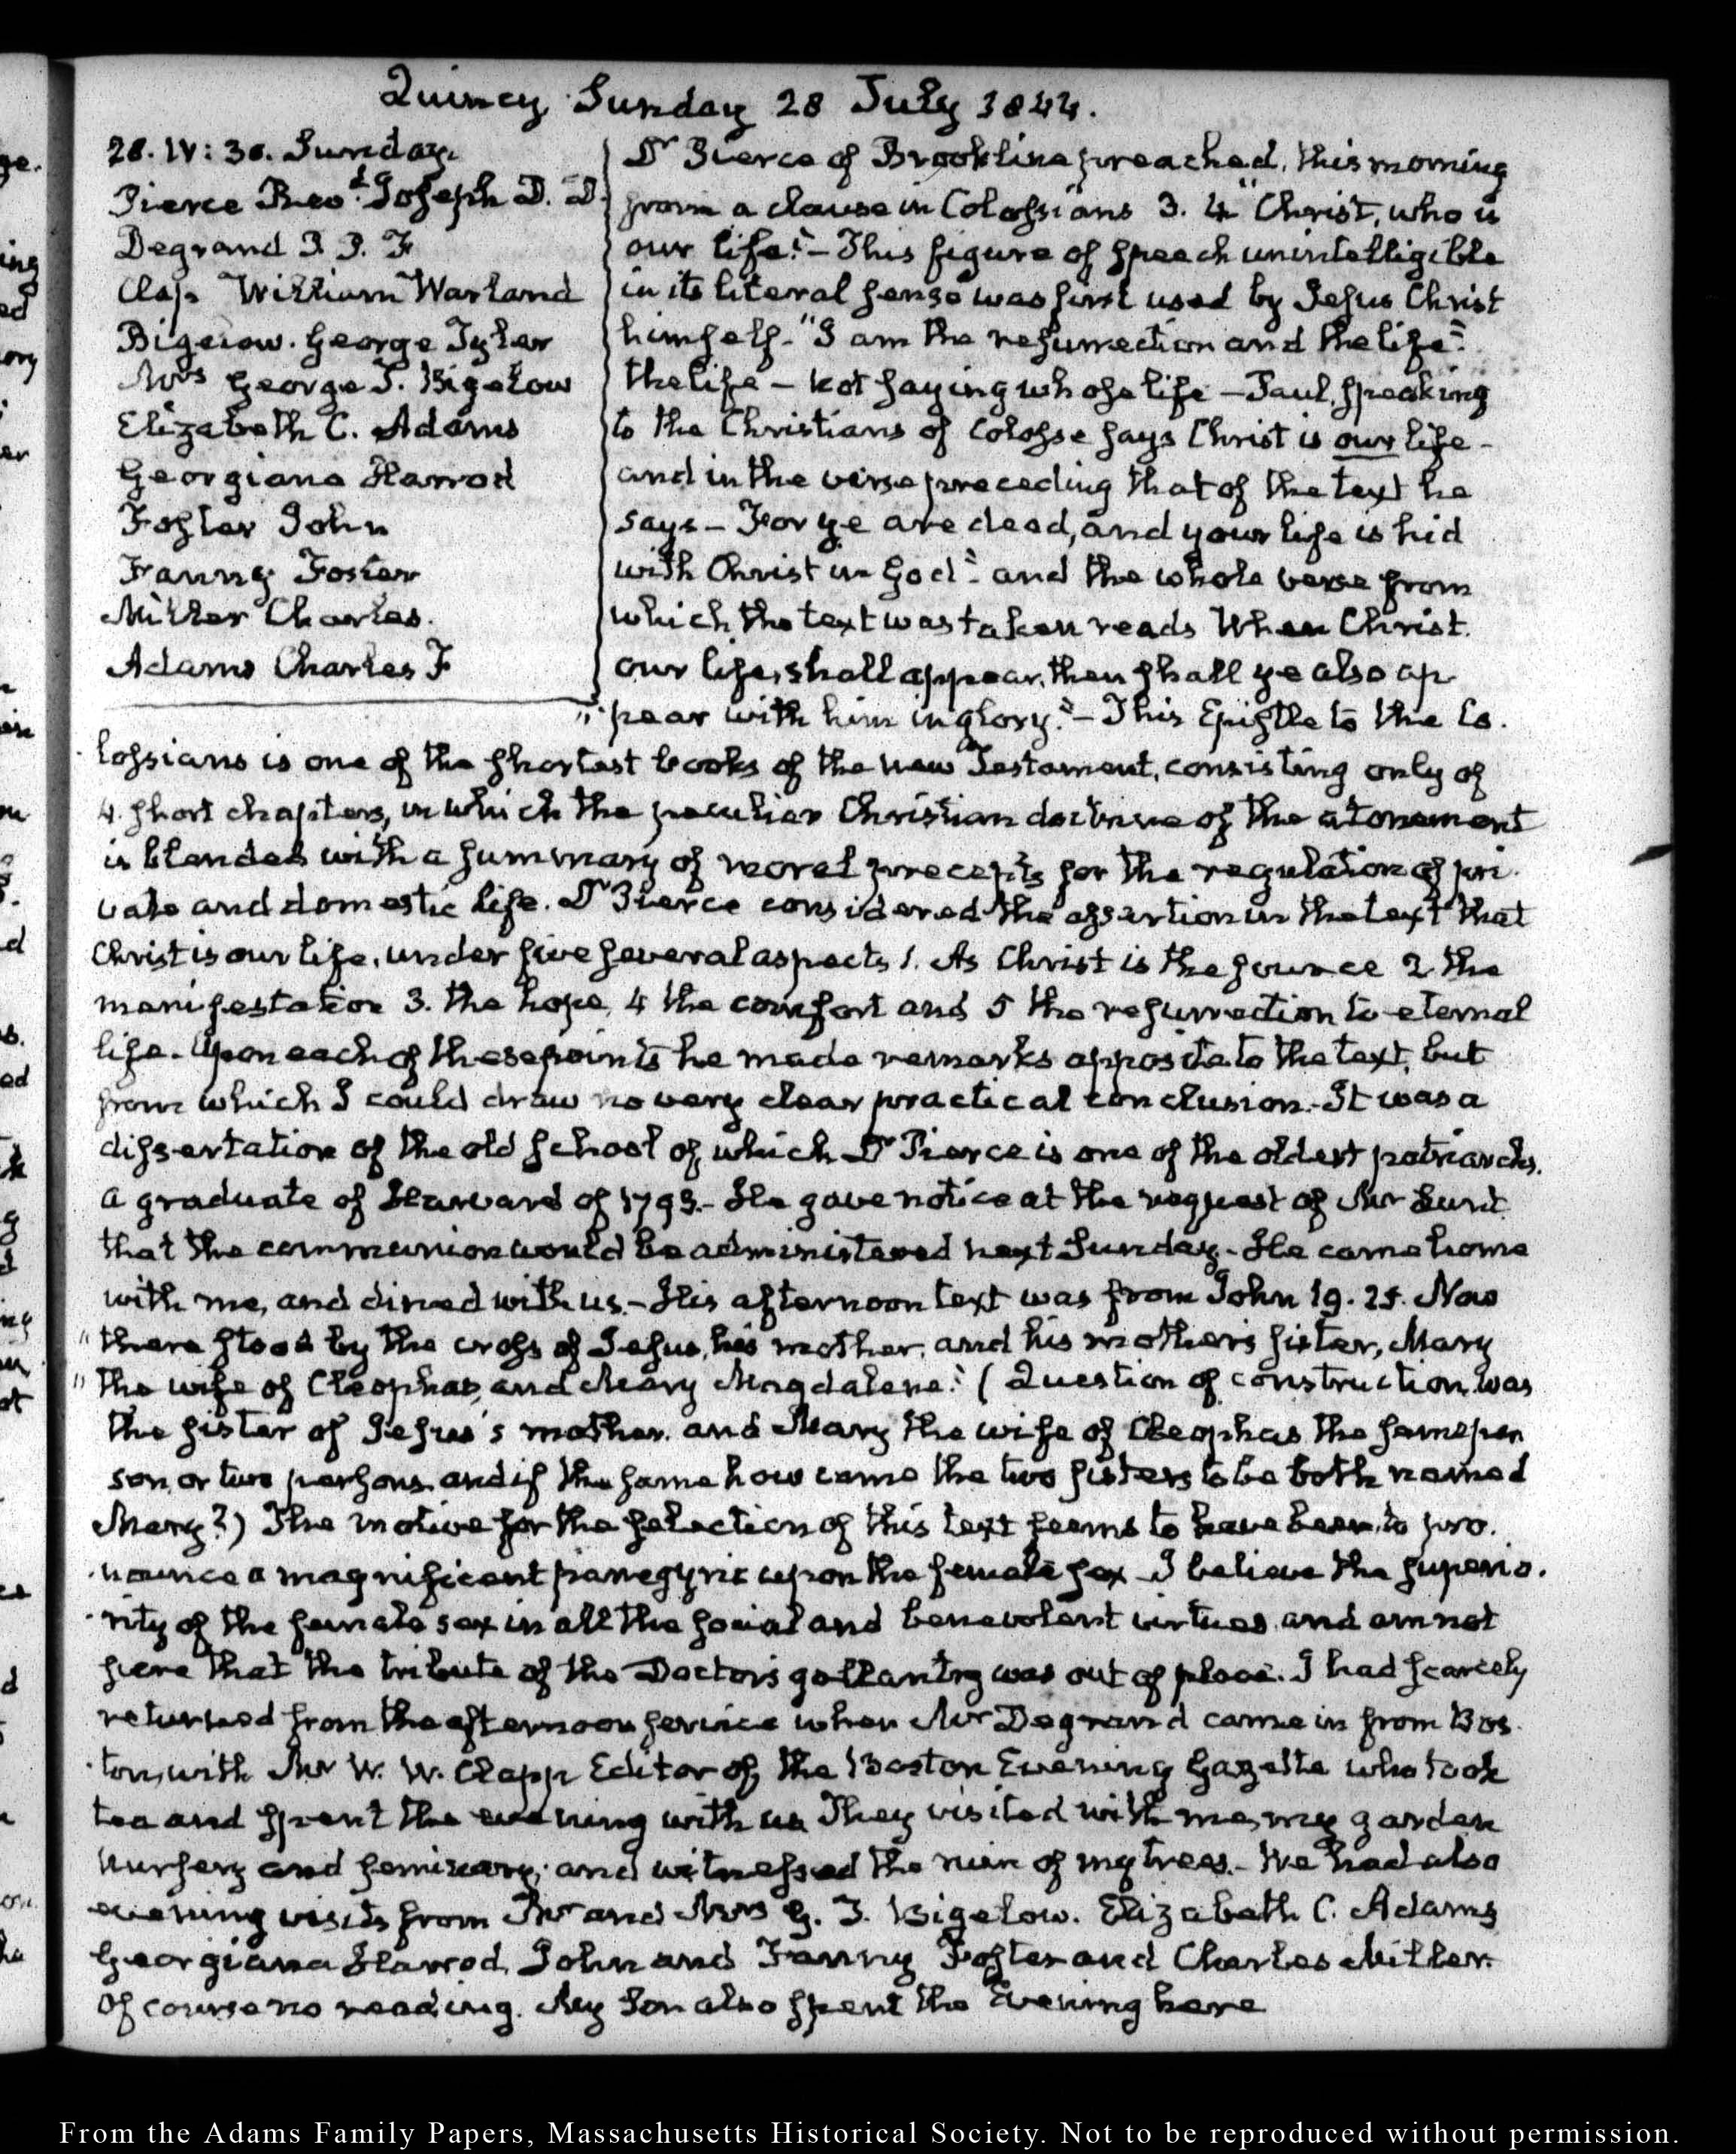 Quincy Sunday 28 July 1844.
28. IV: 30. Sunday.
Pierce Revd. Joseph D. D.
Degrand P. P. F
Clap William Warland
Bigelow. George Tyler
Mrs George T. Bigelow
Elizabeth C. Adams
Georgiana Harrod
Foster John
Fanny Foster
Miller Charles.
Adams Charles F
Dr Pierce of Brookline preached, this morning
from a clause in Colossians 3. 4 "Christ, who is
our life." – This figure of speech unintelligible
in its literal sense was first used by Jesus Christ
himself - "I am the resurrection and the life".
the life – not saying whose life – Paul, speaking
to the Christians of Colosse says Christ is our life -
and in the verse preceding that of the text he
says – For ye are dead, and your life is hid
with Christ in God" - and the whole verse from
which the text was taken reads When Christ.
our life, shall appear, then shall ye also ap
"pear with him in glory." – This Epistle to the Co.
lossians is one of the shortest books of the new Testament, consisting only of
4. short chapters, in which the peculiar Christian doctrine of the atonement
is blended with a summary of moral precepts for the regulation of pri.
vate and domestic life. Dr Pierce considered the assertion in the text that
Christ is our life, under five several aspects 1. As Christ is the source 2 the
manifestation 3. the hope, 4 the comfort and 5 the resurrection to eternal
life - Upon each of these points he made remarks apposite to the text, but
from which I could draw no very clear practical conclusion. - It was a
dissertation of the old school of which Dr Pierce is one of the oldest patriarchs.
a graduate of Harvard of 1793. - He gave notice at the request of Mr Lunt
that the communion would be administered next Sunday - He came home
with me, and dined with us. - His afternoon text was from John 19. 25. Now
"there stood by the cross of Jesus, his mother, and his mother's sister, Mary
"the wife of Cleophas, and Mary Magdalene." (Question of construction, was
the sister of Jesus's mother, and Mary the wife of Cleophas the same per
son, or two persons, and if the same how came the two sisters to be both named
Mary?) The motive for the selection of this text seems to have been, to pro.
nounce a magnificent panegyric upon the female sex – I believe the superio.
rity of the female sex in all the social and benevolent virtues, and am not
here that the tribute of the Doctor's gallantry was out of place. I had scarcely
returned from the afternoon service when Mr Degrand came in from Bos.
ton, with Mr W. W. Clapp Editor of the Boston Evening Gazette who took
tea and spent the evening with us They visited with me, my garden
nursery and seminary; and witnessed the ruin of my trees. - We had also
evening visits from Mr and Mrs G. T. Bigelow. Elizabeth C. Adams
Georgiana Harrod, John and Fanny Foster and Charles Miller.
Of course no reading. My Son also spent the Evening here
From the Adams Family Papers, Massachusetts Historical Society. Not to be reproduced without permission.